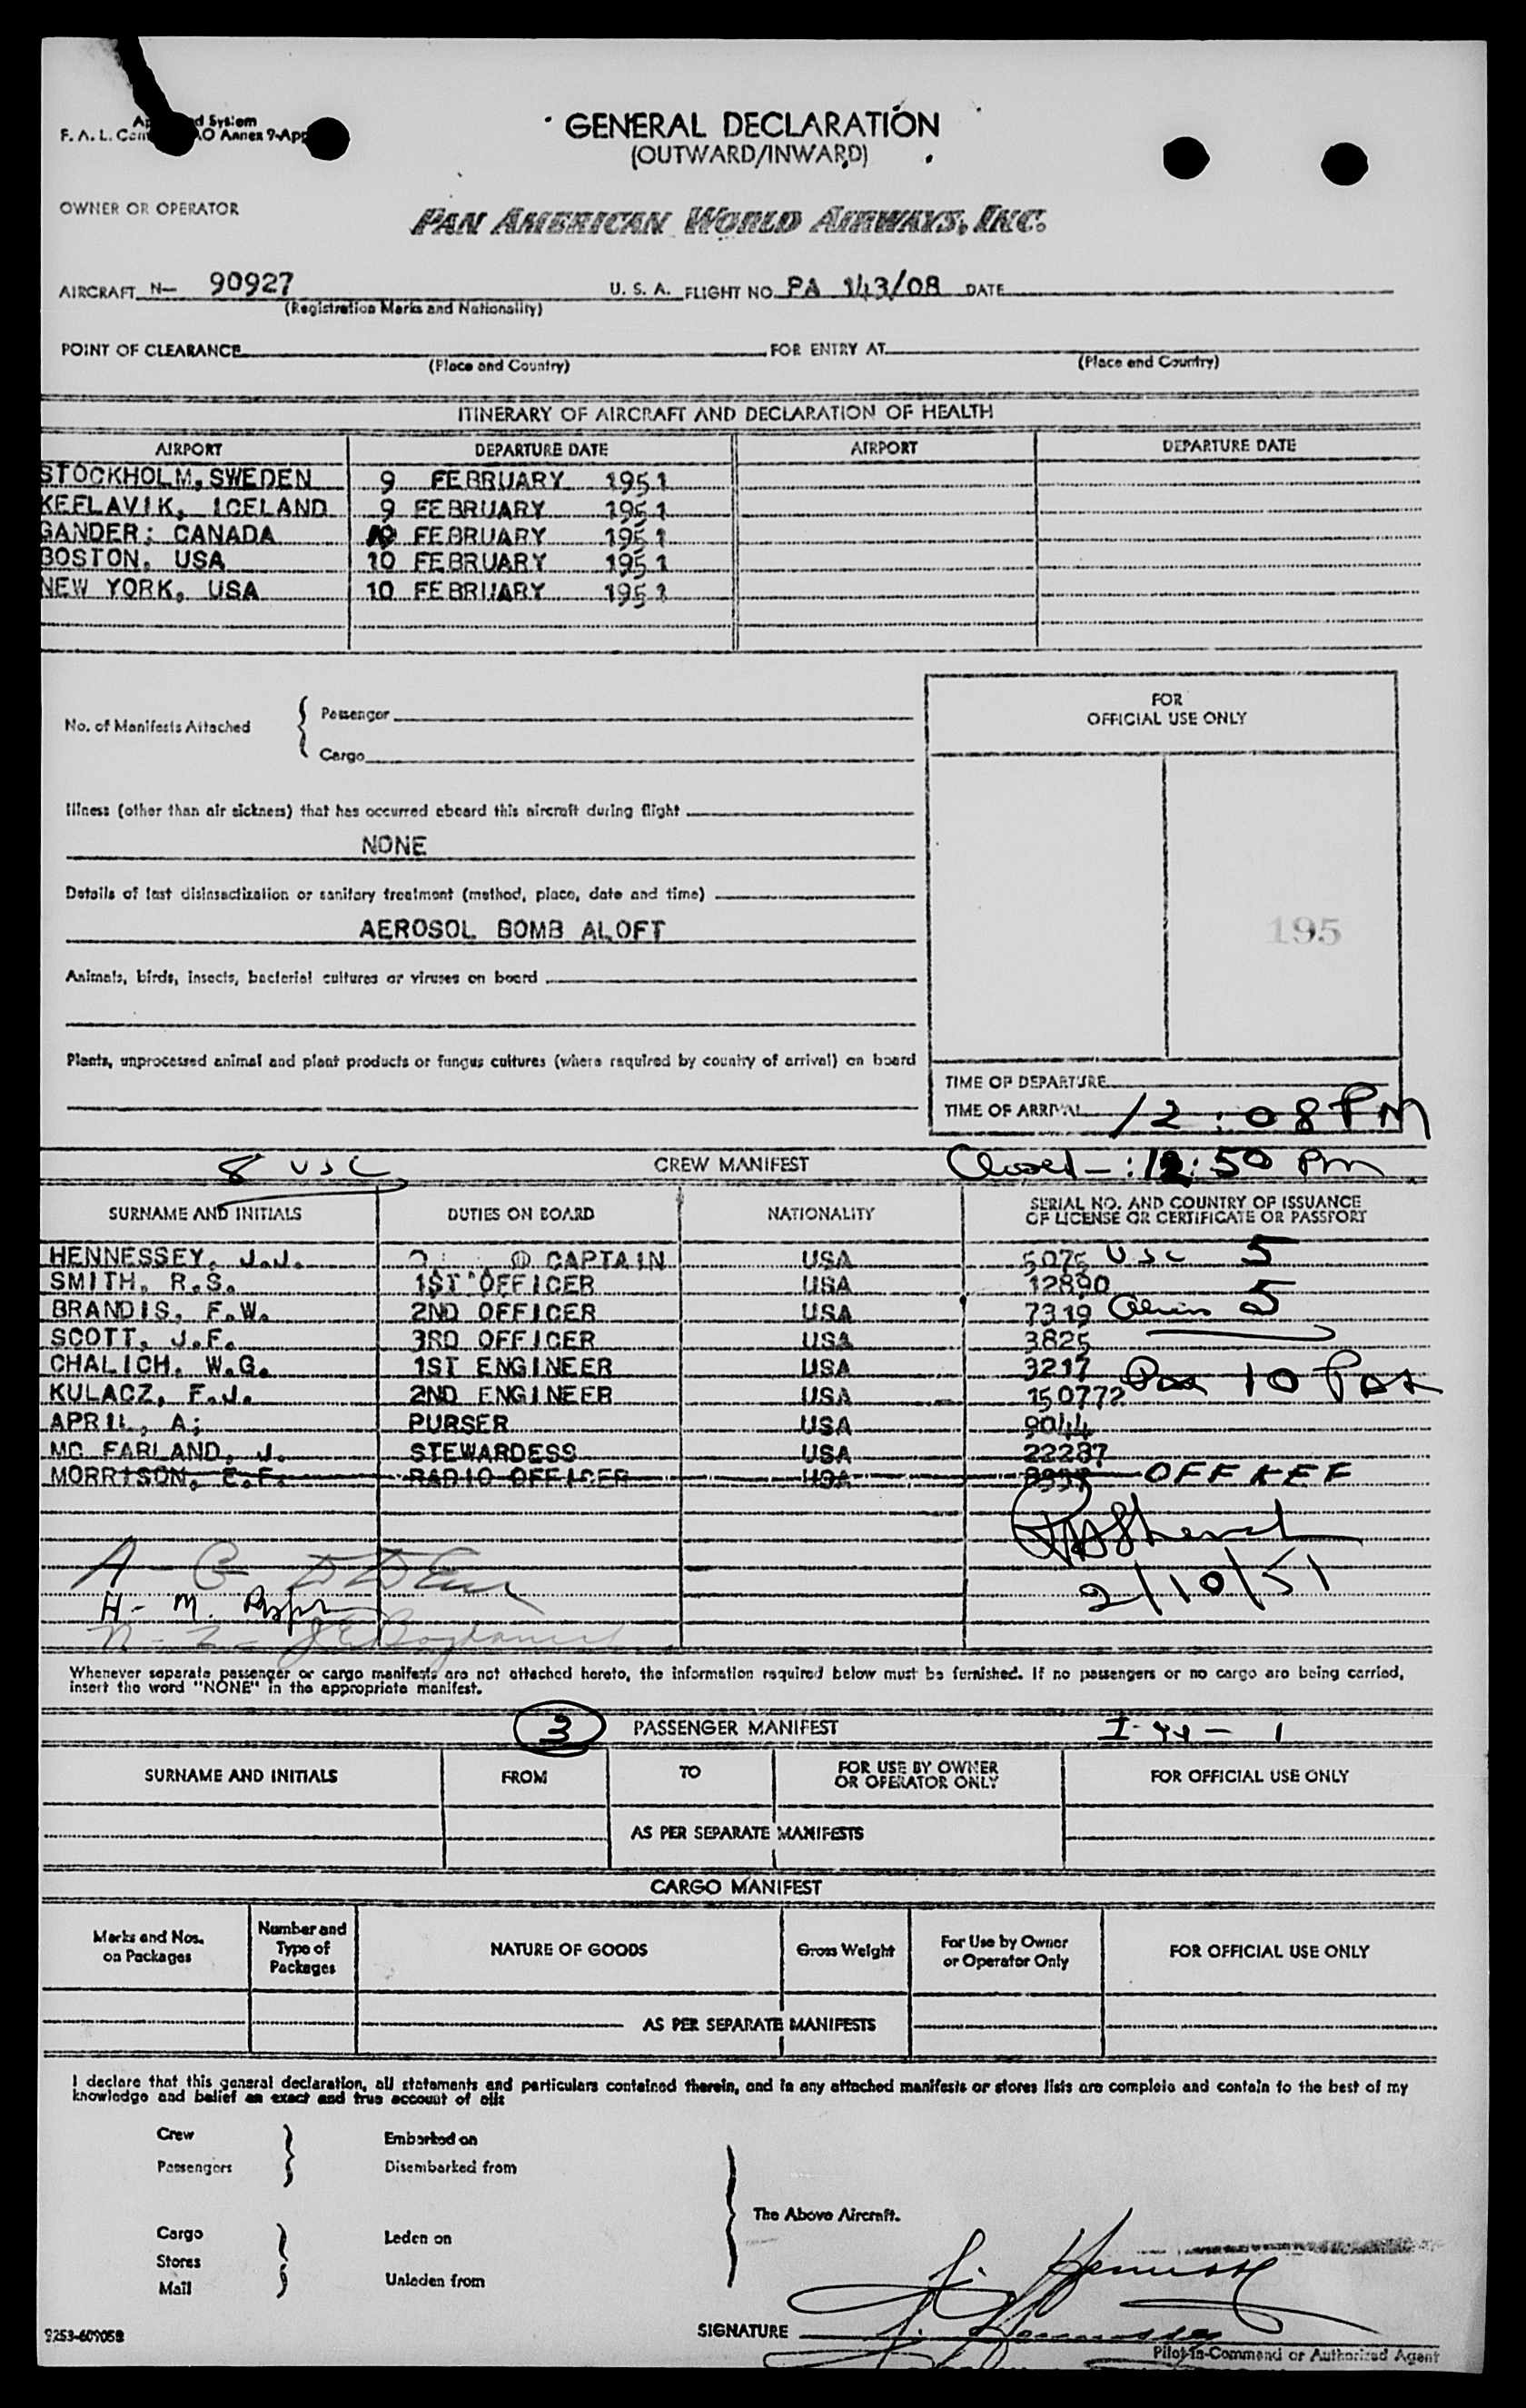 d System
F. A. L. O Annex 9-App
GENERAL DECLARATION
(OUTWARD/INWARD)
OWNER OR OPERATOR
PAN AMERICAN WORLD AIRWAYS, INC.
AIRCRAFT N- 90927 U. S. A. FLIGHT NO. PA 143/08 DATE
(Registration Marks and Nationality)
POINT OF CLEARANCE FOR ENTRY AT
(Place and Country) (Place and Country)
ITINERARY OF AIRCRAFT AND DECLARATION OF HEALTH
AIRPORT DEPARTURE DATE AIRPORT DEPARTURE DATE
STOCKHOLM, SWEDEN 9 FEBRUARY 1951
KEFLAVIK, ICELAND 9 FEBRUARY 1951
GANDER; CANADA FEBRUARY 1951
BOSTON, USA 10 FEBRUARY 1951
NEW YORK, USA 10 FEBRUARY 1951
No. of Manifests Attached { Passenger
Cargo
FOR
OFFICIAL USE ONLY
Illness (other than air sickness) that has occurred aboard this aircraft during flight
NONE
Details of last disinsectization or sanitary treatment (method, place, date and time)
AEROSOL BOMB ALOFT
195
Animals, birds, insects, bacterial cultures or viruses on board
Plants, unprocessed animal and plant products or fungus cultures (where required by country of arrival) on board
TIME OF DEPARTURE
TIME OF ARRIVAL 12:08 PM
8 USC CREW MANIFEST Closed - :12:50 PM
SURNAME AND INITIALS DUTIES ON BOARD NATIONALITY SERIAL NO. AND COUNTRY OF ISSUANCE
OF LICENSE OR CERTIFICATE OR PASSPORT
HENNESSEY, J.J. CAPTAIN USA 5075 USC 5
SMITH, R.S. 1ST OFFICER USA 12890
BRANDIS, F.W. 2ND OFFICER USA 7319 Aliens 5
SCOTT, J.F. 3RD OFFICER USA 3825
CHALICH, W.G. 1ST ENGINEER USA 3217 10 Pax
KULACZ, F.J. 2ND ENGINEER USA 150772
APRIL, A; PURSER USA 9044
MC FARLAND, J. STEWARDESS USA 22287
MORRISON, E.F. RADIO OFFICER USA OFF KEF
2/10/51
A - G
H - M.
N - Z -
Whenever separate passenger or cargo manifests are not attached hereto, the information required below must be furnished. If no passengers or no cargo are being carried,
insert the word "NONE" in the appropriate manifest.
3 PASSENGER MANIFEST I-44 - 1
SURNAME AND INITIALS FROM TO FOR USE BY OWNER
OR OPERATOR ONLY FOR OFFICIAL USE ONLY
AS PER SEPARATE MANIFESTS
CARGO MANIFEST
Marks and Nos.
on Packages Number and
Type of
Packages NATURE OF GOODS Gross Weight For Use by Owner
or Operator Only FOR OFFICIAL USE ONLY
AS PER SEPARATE MANIFESTS
I declare that this general declaration, all statements and particulars contained therein, and in any attached manifests or stores lists are complete and contain to the best of my
knowledge and belief an exact and true account of all:
Crew Embarked on
Passengers Disembarked from
The Above Aircraft.
Cargo Laden on
Stores
Mail Unladen from
J. Hennessey
SIGNATURE J. Hennessey
9253-60905B Pilot-in-Command or Authorized Agent